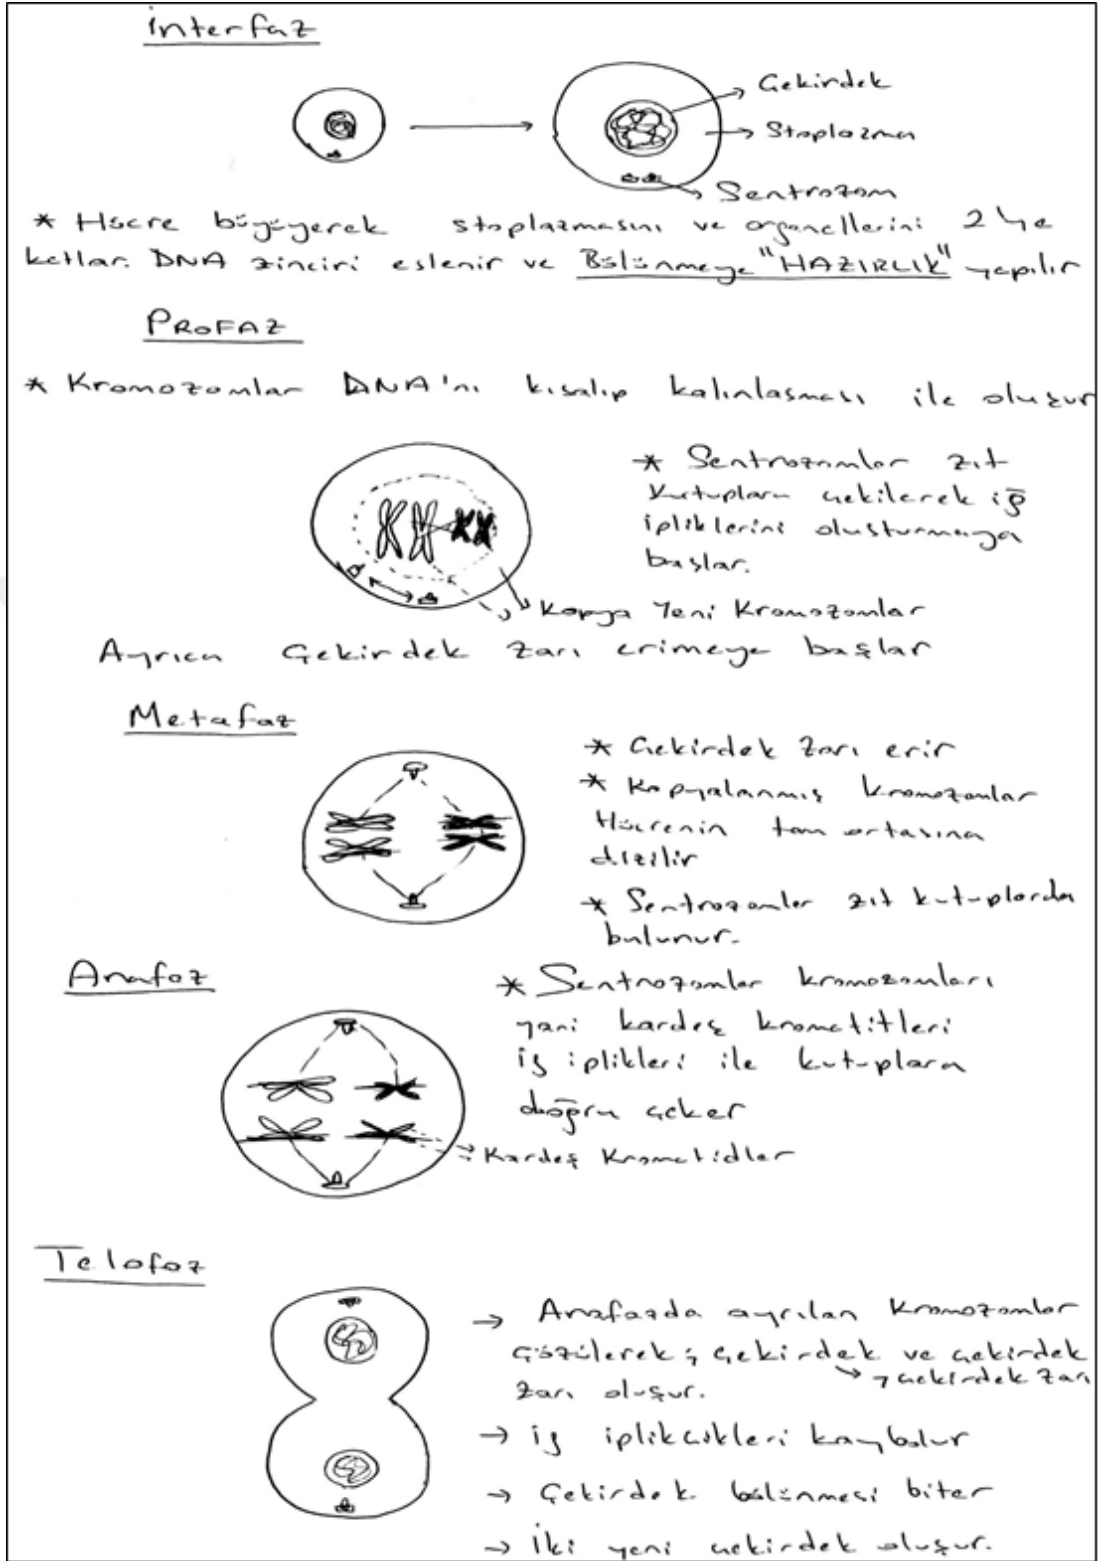 İnterfaz
Çekirdek
Stoplazma
Sentrozom
* Hücre büyüyerek stoplazmasını ve organellerini 2'ye
katlar. DNA zinciri eslenir ve Bölünmeye "HAZIRLIK" yapılır
PROFAZ
* Kromozomlar DNA'nı kısalıp kalınlasması ile oluşur
* Sentrozomlar zıt
kutuplara çekilerek iğ
ipliklerini olusturmaya
başlar.
Kopya Yeni Kromozomlar
Ayrıca Çekirdek zarı erimeye başlar
Metafaz
* Çekirdek Zarı erir
* Kopyalanmış kromozomlar
Hücrenin tam ortasına
dizilir
* Sentrozomlar zıt kutuplarda
bulunur.
Anafaz
* Sentrozomlar kromozomları
yani kardeş kromatitleri
iğ iplikleri ile kutuplara
doğru çeker
Kardeş Kromatidler
Telofaz
→ Anafazda ayrılan Kromozomlar
Çözülerek; çekirdek ve çekirdek
zarı oluşur.
→ çekirdek zarı
→ iğ iplikçikleri kaybolur
→ Çekirdek bölünmesi biter
→ İki yeni çekirdek oluşur.